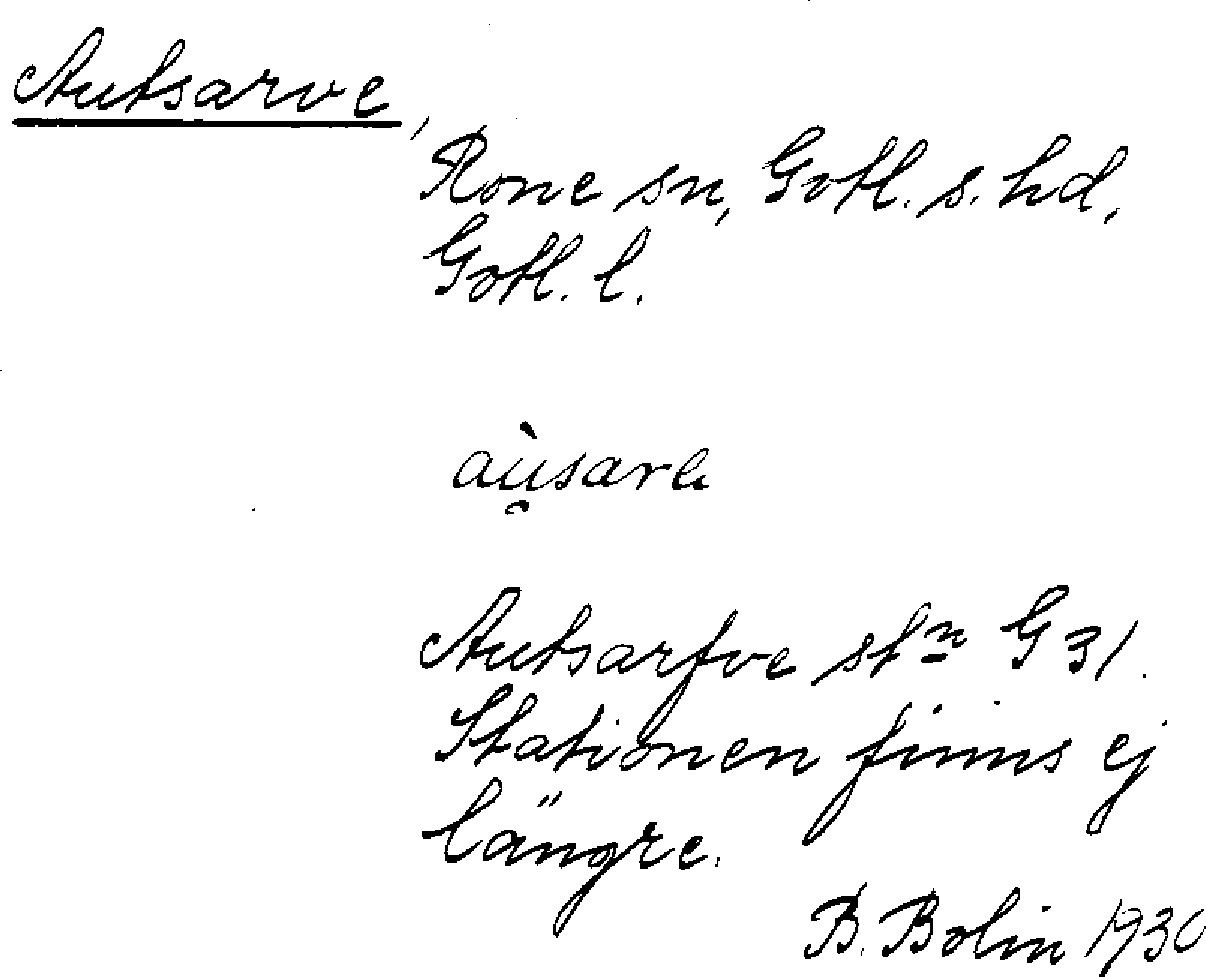 Autsarve,
Rone sn, Gotl. s. hd,
Gotl. l.
aù̯sarve
Autsarfve stn G 31.
Stationen finns ej
längre.
B. Bolin 1930